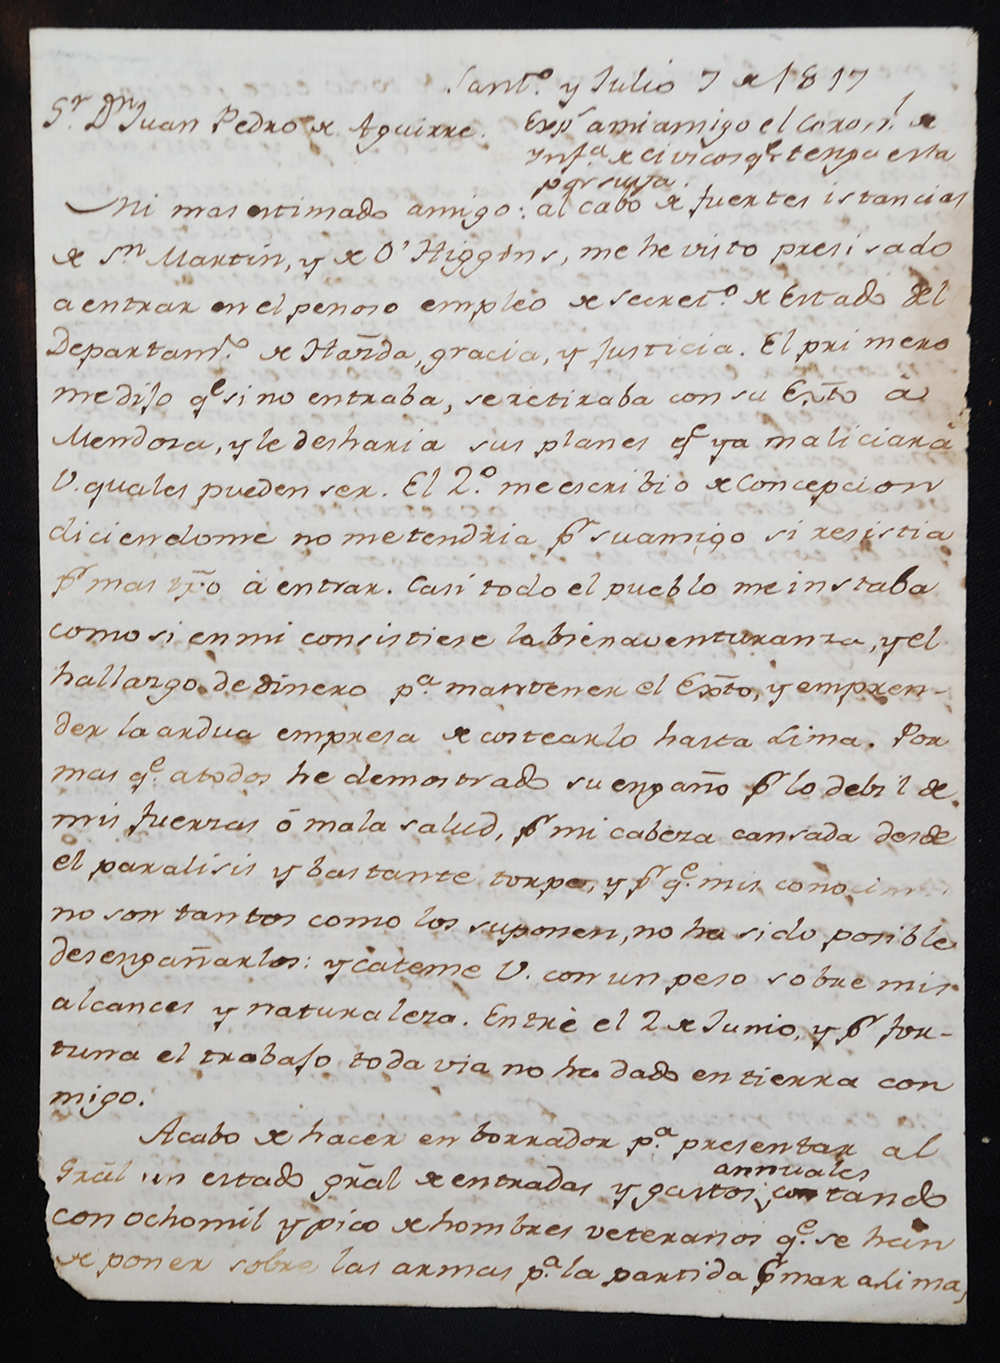 Sant.º y Julio 7 de 1817
S.r D.n Juan Pedro de Aguirre.
Exp.s a mi amigo el Coron.l de
ynf.a de civicos q.e tenga esta
por suya.
Mi mas estimado amigo: al cabo de fuertes istancias
de S.n Martin, y de O'Higgins, me he visto presisado
a entrar en el penoso empleo de secret.º de Estado del
Departam.to de Haz.da, gracia, y justicia. El primero
me dijo q.e si no entraba, se retiraba con su Exto à
Mendosa, y le desharia sus planes q.e ya maliciará
V. quales pueden ser. El 2.º me escribió de Concepcion
diciendome no me tendria p.r su amigo si resistia
p.r mas tpo à entrar. Casi todo el pueblo me instaba
como si en mi consistiese la bienaventuranza, y el
hallazgo de dinero p.a mantener el Exto, y empren-
der la ardua empresa de costearlo hasta Lima. Por
mas q.e a todos he demostrado su engaño p.r lo debil de
mis fuerzas ó mala salud, p.r mi cabeza cansada desde
el paralisis y bastante torpe, y p.r q.e mis
no son tantos como los suponen, no ha sido posible
desengañarlos: y cateme V. con un peso sobre mis
alcances y naturaleza. Entrè el 2 de Junio, y p.r for-
tuna el trabajo toda via no ha dado en tierra con
migo.
Acabo de hacer en borrador p.a presentar al
annuales
Gräl un estado gräl de entradas y gastos, contando
con ochomil y pico de hombres veteranos q.e se han
de poner sobre las armas p.a la partida p.r mar a Lima,